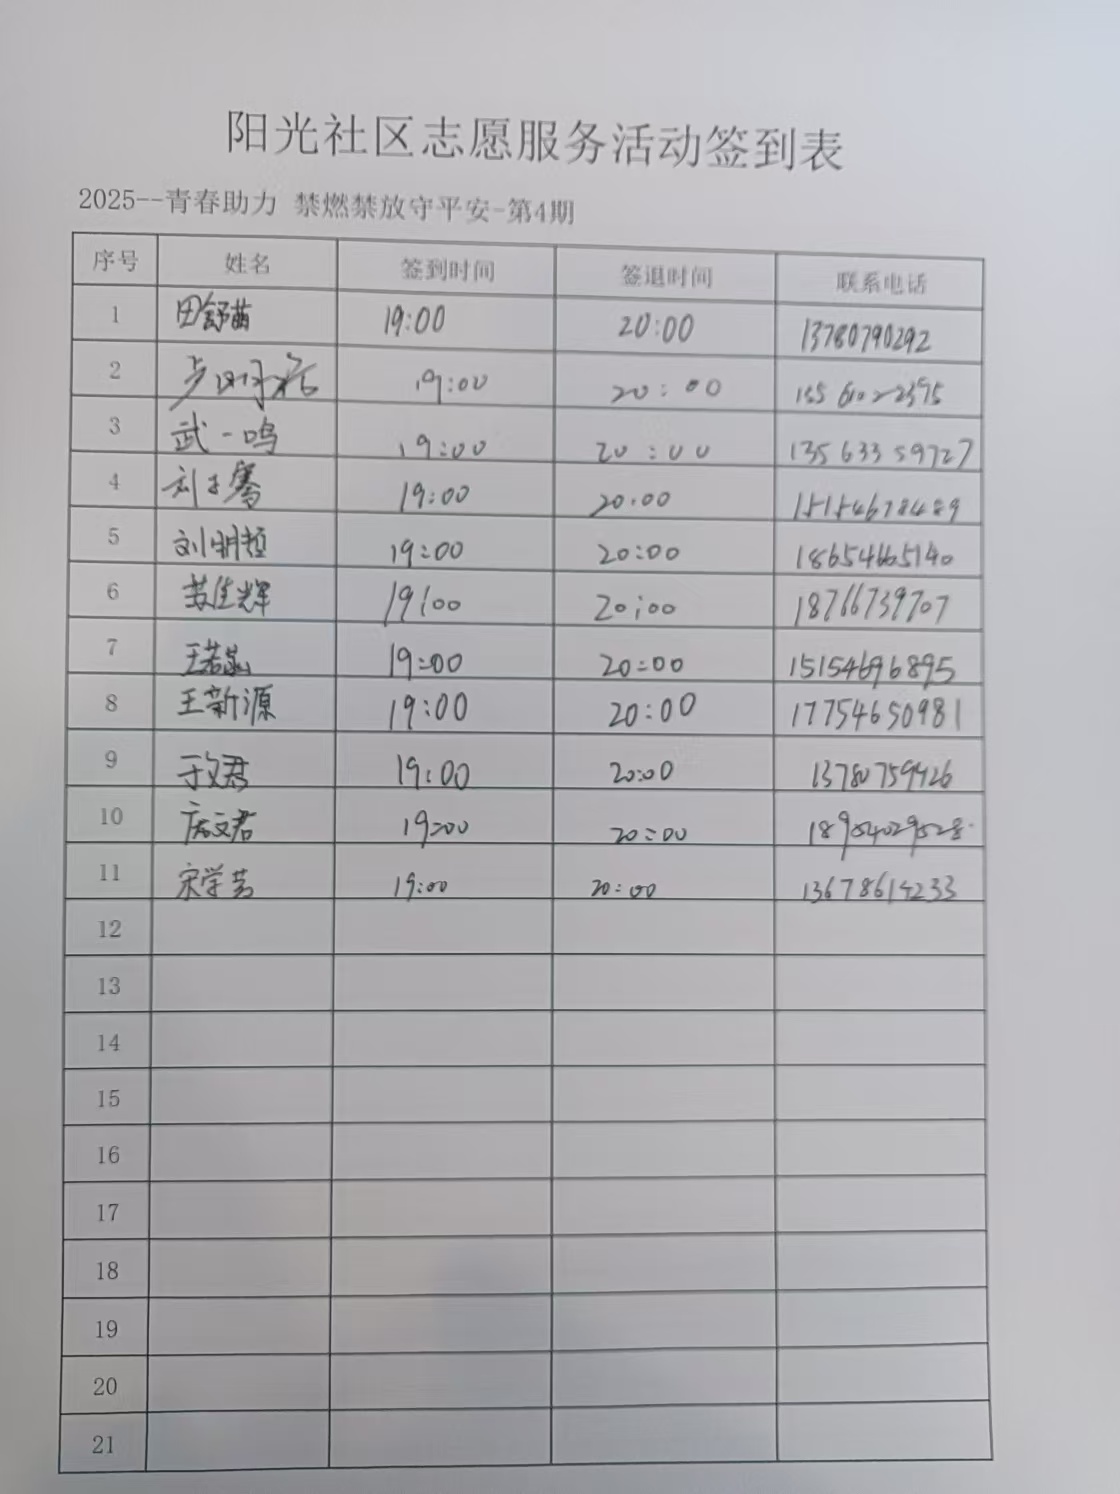 阳光社区志愿服务活动签到表
2025--青春助力 禁燃禁放守平安-第4期
序号 姓名 签到时间 签退时间 联系电话
1 田舒苗 19:00 20:00 13780790292
2 19:00 20:00
3 武一鸣 19:00 20:00 13563359727
4 刘子骞 19:00 20:00 15154678489
5 刘明哲 19:00 20:00 18654665140
6 苏佳辉 19:00 20:00 18766739707
7 王若 19:00 20:00 15154696895
8 王新源 19:00 20:00 17754650981
9 于文君 19:00 20:00 13780759426
10 文君 19:00 20:00 18954029528
11 宋学芸 19:00 20:00 13678614233
12
13
14
15
16
17
18
19
20
21